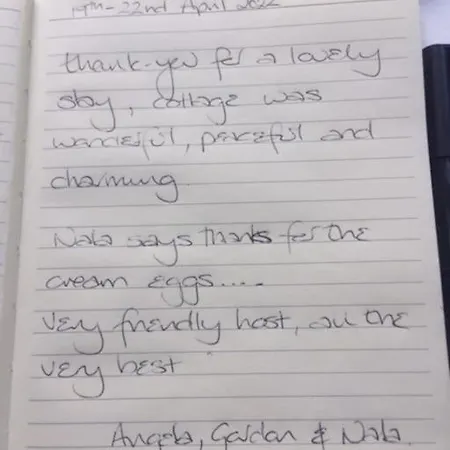 19th - 22nd April 2022
thank-you for a lovely
stay, cottage was
wonderful, peaceful and
charming
Nala says thanks for the
cream eggs.....
very friendly host, all the
very best
Angela, Gordon & Nala.